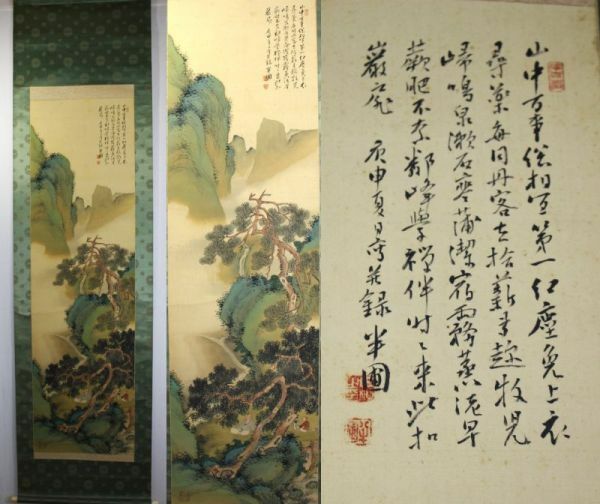 山中万事総相宜第一紅塵免上衣
尋薬毎同丹客去拾薪多趁牧児
帰鳴泉漱石蒲潔宿雨蒸泥早
蕨肥不奈鄰峰學禅伴時々来此扣
巌扉 庚申夏日寫并録 半圃